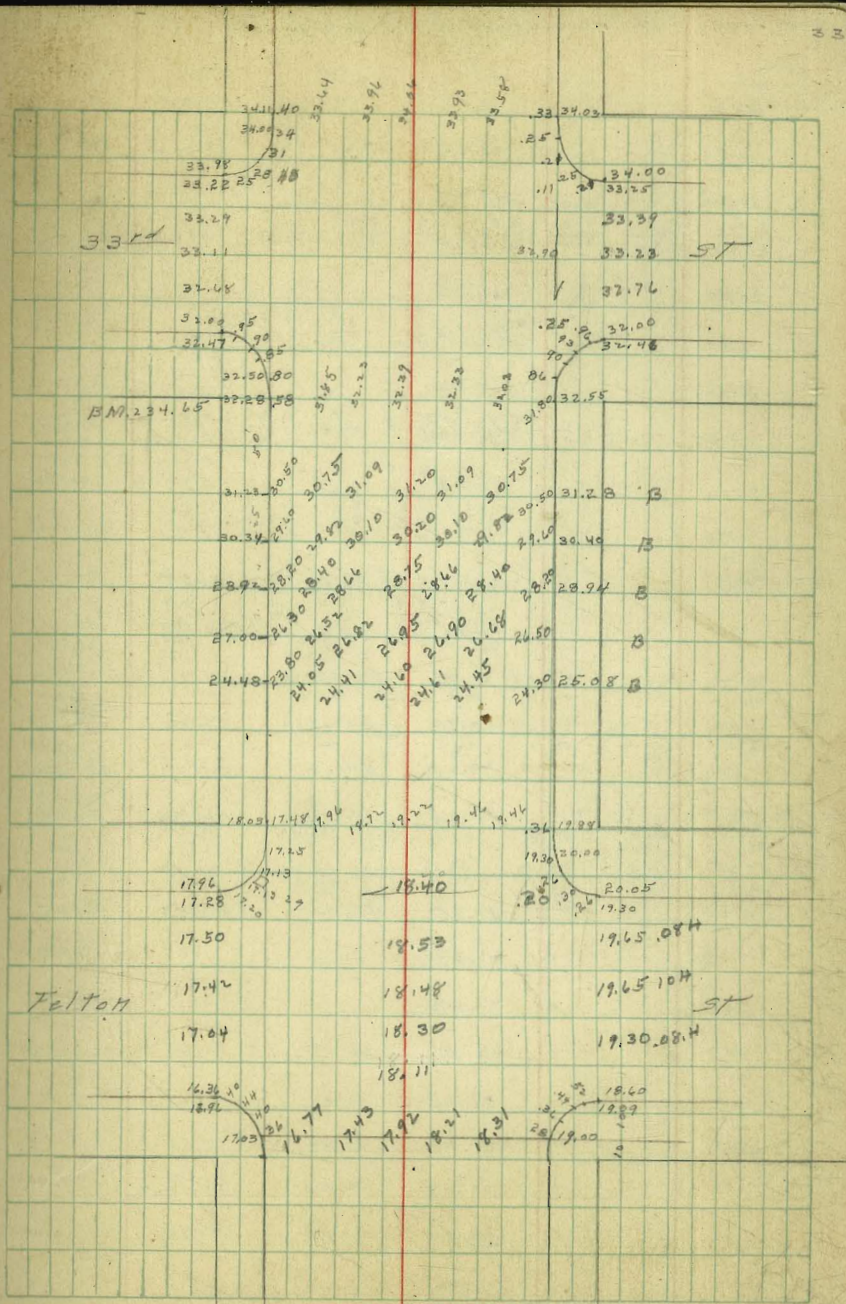 33
34.11 .40 33.64 33.96 34.06 33.93 33.58 .33 34.03
34.00 34 .25
31 .21
33.98 25 34.00
33.22 25 28 .11 33.25
33.29 33.39
33rd 33.11 32.90 33.23 ST
32.68 32.76
32.00 .95 .25 .96 32.00
32.47 90 93 32.46
85 90
32.50 .80 86
BM.234.65 32.28 .58 31.85 32.23 32.39 32.33 32.03 31.80 32.55
31.23 30.50 30.75 31.09 31.20 31.09 30.75 30.50 31.28 B
30.34 29.60 29.82 30.10 30.20 30.10 29.82 29.60 30.40 B
28.92 28.20 28.40 28.66 28.75 28.66 28.40 28.20 28.94 B
27.00 26.30 26.52 26.82 26.95 26.90 26.68 26.50 B
24.48 23.80 24.05 24.41 24.60 24.61 24.45 24.30 25.08 B
18.03 17.48 17.96 18.72 19.22 19.46 19.46 .36 19.88
17.25 19.30 20.00
17.13 .26
17.96 18.40 20.05
17.28 .20 29 .20 .30 .26 19.30
17.50 18.53 19.65 .08H
Felton 17.42 18.48 19.65 10H ST
17.04 18.30 19.30 .08.H
18.11
16.36 40 52 18.60
44 19.89
40
17.03 36 16.77 17.43 17.92 18.21 18.31 28 19.00
10